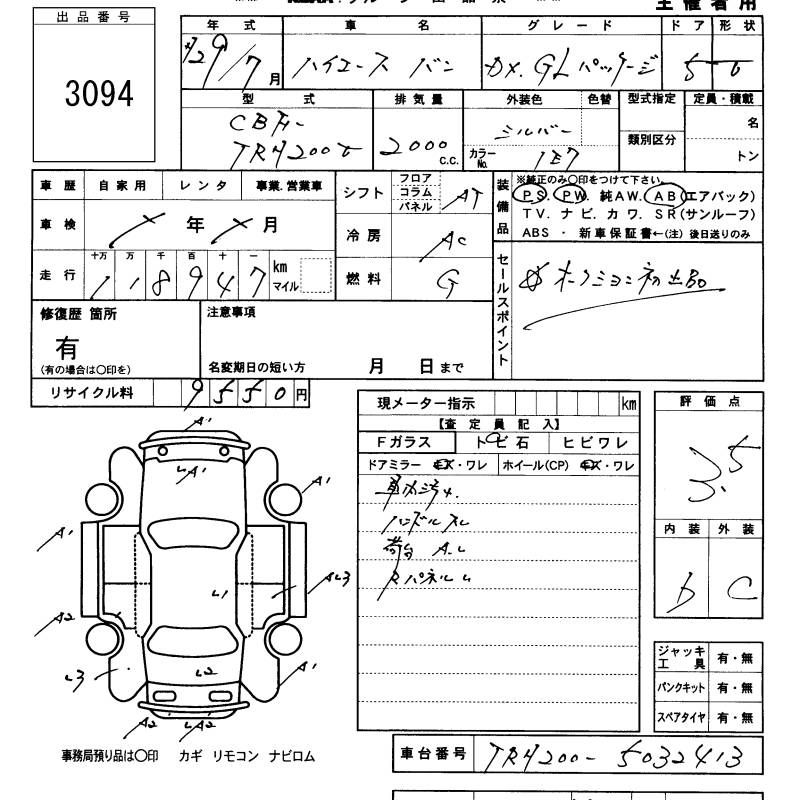 出品番号
3094
主催者用
年式 車名 グレード ドア 形状
H29/7月 ハイエース バン DX.GLパッケージ 5 6
型式 排気量 外装色 色替 型式指定 定員・積載
CBF- 2000 シルバー 名
TRH200V c.c. カラーNo. 1E7 類別区分 トン
車歴 自家用 レンタ 事業.営業車
シフト フロア コラム パネル AT
装備品 ※純正のみ○印をつけて下さい。
PS. PW. 純AW. AB(エアバック)
TV. ナビ. カワ. SR(サンルーフ)
ABS ・ 新車保証書←(注)後日送りのみ
車検 年 月
冷房 AC
走行 十万 万 千 百 十 一 km マイル
118947
燃料 G
セールスポイント
オークション初出品
修復歴 箇所
有
(有の場合は○印を)
注意事項
名変期日の短い方 月 日まで
リサイクル料 9550円
現メーター指示 km
【査定員記入】
Fガラス トビ石 ヒビワレ
ドアミラー キズ・ワレ ホイール(CP) キズ・ワレ
ハンドルスレ
荷台 A.L
Rパネル L
評価点
3.5
内装 外装
D C
ジャッキ工具 有・無
パンクキット 有・無
スペアタイヤ 有・無
A1
LA1
A1
A1
AL3
L1
A2
L3
L2
A1
A2
LA2
事務局預り品は○印 カギ リモコン ナビロム
車台番号 TRH200-5032413